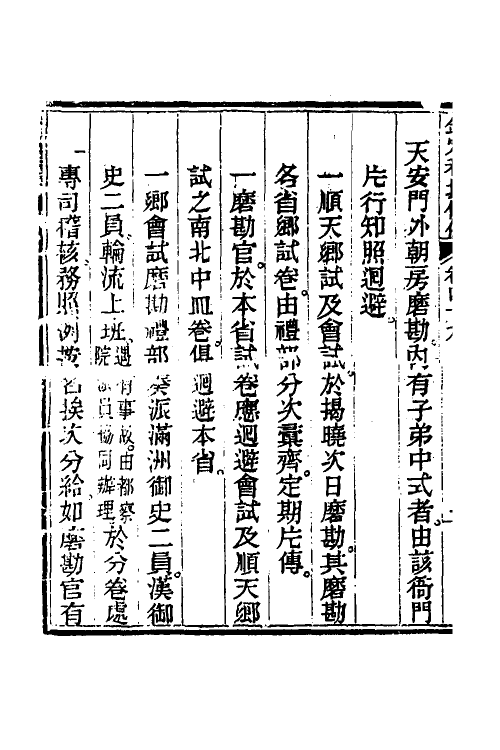 天安門外朝房磨勘內有子弟中式者由該衙門
片行知照迴避
一順天鄉試及會試於揭曉次日磨勘其磨勘
各省鄉試卷由禮部分次彙齊定期片傳
一磨勘官於本省試卷應迴避會試及順天鄉
試之南北中皿卷俱迴避本省
一鄉會試磨勘禮部奏派滿洲御史二員漢御
史二員輪流上班遇有事故由都察院派員協同辦理於分卷處
專司稽該務照例按名挨次分給如磨勘官有